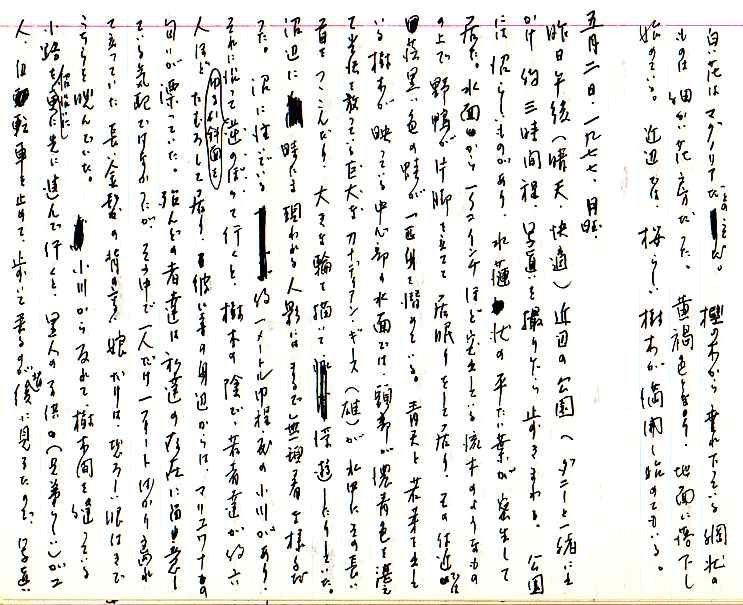 白い花はマグノリアだ。樫の木から垂れ下っている綱状の
ものは細かい花房だった。黄褐色となり、地面に落下し
始めている。近辺では、桜らしい樹木が満開し始めている。
五月二日・一九七七、月曜
昨日午後(晴天、快適)近辺の公園へダニーと一緒に出
かけ約三時間程、写真を撮りながら歩きまわる。公園
には沼らしいものがあり、水蓮状の平たい葉が密生して
居た。水面から一、二インチほど突出している流木のようなもの
の上で野鴨が片脚を立てて居眠りをして居り、その付近
黒い色の蛙が一匹身を潜めている。青天と若葉で
いる樹木が映っている中心部の水面では、頭部が濃青色を
巨大なカナディアン・ギース(雄)が水中にその長い
首をつっこんだり、大きな輪を描いて 浮遊したりしていた。
沼辺に 時たま現われる人影にはまるで無頓着な様子
だった。沼に注いでいる 約一メートル巾程度の小川があり、
それに沿ってゆるい斜面を逆のぼって行くと、樹木の陰で、若者達が約六
人ほどたむろして居り、彼い等の身辺からは、マリユワナの
匂いが漂っていた。殆んどの者達は私達の存在に留意し
ている気配ではなかったが、その中で一人だけ
立っていた長い金髪の背の高い娘だけは、恐ろしい眼付きで
こちらを睨んでいた。 小川から反れて、樹木間を縫っている
小路を 先に進んで行くと、黒人の子供(兄弟らしい)が二
人、自転車を止めて、 後に見えたので、写真